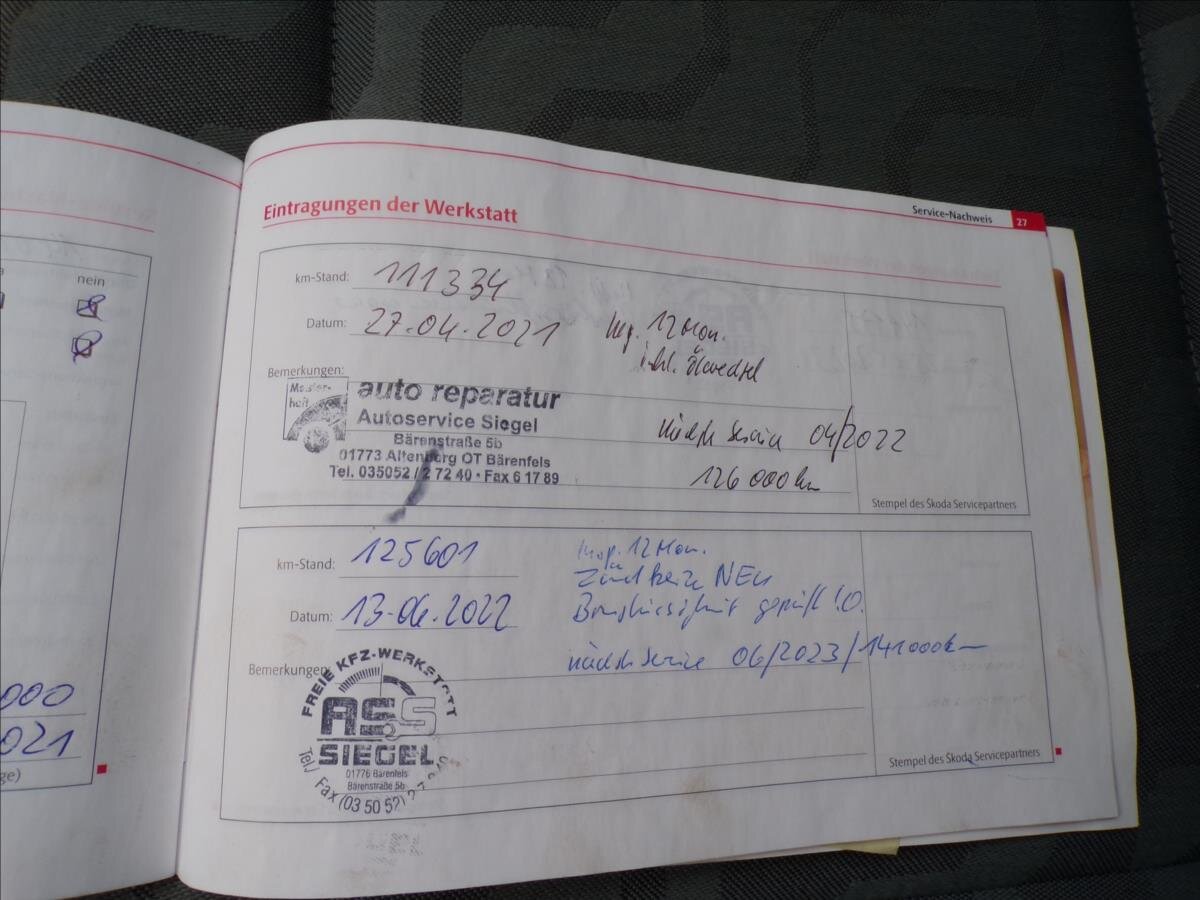 nein
000
021
ge)
Service-Nachweis 27
Eintragungen der Werkstatt
km-Stand: 111334
Datum: 27.04.2021
Insp. 12 Mon.
inkl. Ölwechsel
Bemerkungen:
Meister-
haft
auto reparatur
Autoservice Siegel
Bärenstraße 5b
01773 Altenberg OT Bärenfels
Tel. 035052 / 2 72 40 • Fax 6 17 89
nächster Service 04/2022
126 000 km
Stempel des Škoda Servicepartners
km-Stand: 125601
Datum: 13.06.2022
Insp. 12 Mon.
Zündkerze NEU
Bremsflüssigkeit geprüft i.O.
nächster Service 06/2023/141000km
Bemerkungen:
FREIE KFZ-WERKSTATT
AS
SIEGEL
01776 Bärenfels
Bärenstraße 5b
Tel./ Fax (03 50 52)
Stempel des Škoda Servicepartners